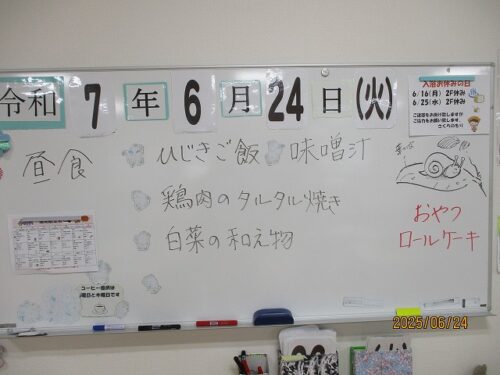 令和 7 年 6 月 24 日 (火)
入浴お休みの日
6/16(月) 2F休み
6/25(水) 2F休み
ご迷惑をお掛け致しますが
ご協力をお願い致します
さくらのもり
昼食
ひじきご飯 味噌汁
鶏肉のタルタル焼き
白菜の和え物
おやつ
ロールケーキ
コーヒー提供は
曜日と木曜日です
2025/06/24